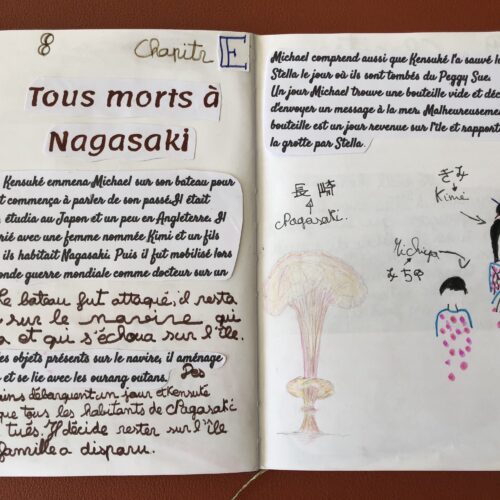 8
Chapitr E
Tous morts à
Nagasaki
Kensuké emmena Michael sur son bateau pour
t commença à parler de son passé.Il était
étudia au Japon et un peu en Angleterre. Il
rié avec une femme nommée Kimi et un fils
ils habitait Nagasaki. Puis il fut mobilisé lors
onde guerre mondiale comme docteur sur un
Le bateau fut attaqué, il resta
sur le navire qui
a et qui s'échoua sur l'île.
es objets présents sur le navire, il aménage
et se lie avec les ourang outans. Des
ains débarquent un jour et Kensuké
que tous les habitants de Nagasaki
tués. Il décide rester sur l'île
famille a disparu.
Michael comprend aussi que Kensuké l'a sauvé l
Stella le jour où ils sont tombés du Peggy Sue.
Un jour Michael trouve une bouteille vide et déc
d'envoyer un message à la mer. Malheureusemen
bouteille est un jour revenue sur l'île et rapport
la grotte par Stella.
長崎
Nagasaki.
きみ
Kimi
Michiya
みちや